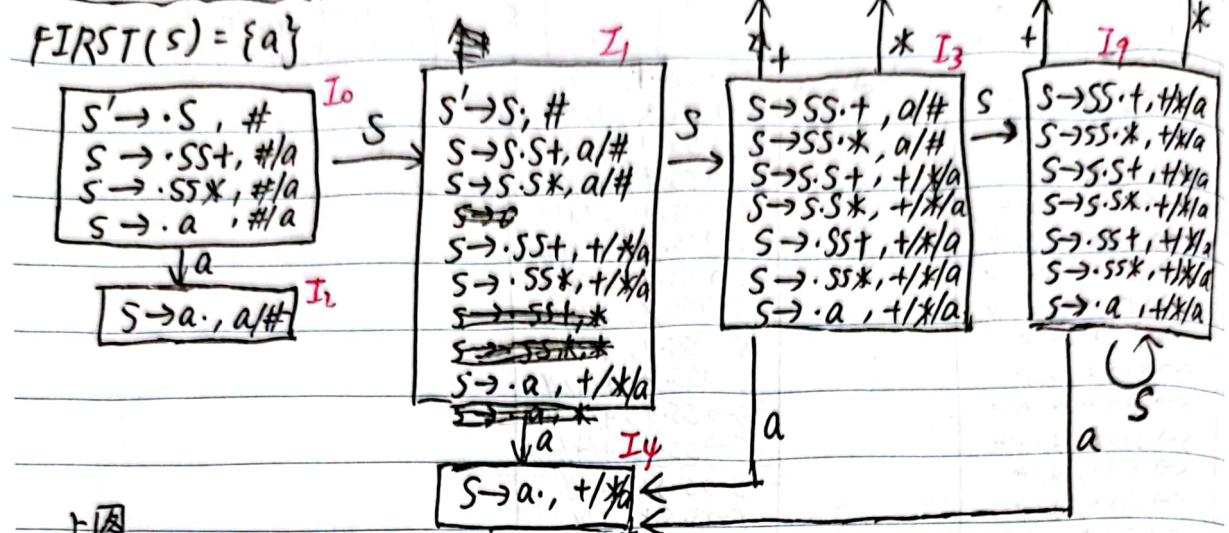 FIRST(S) = {a}
I₀
S'→·S, #
S→·SS+, #/a
S→·SS*, #/a
S→·a, #/a
a
I₂
S→a·, a/#
S
I₁
S'→S·, #
S→S·S+, a/#
S→S·S*, a/#
S→·SS+, +/*/a
S→·SS*, +/*/a
S→·a, +/*/a
a
I₄
S→a·, +/*/a
S
+
*
I₃
S→SS·+, a/#
S→SS·*, a/#
S→S·S+, +/*/a
S→S·S*, +/*/a
S→·SS+, +/*/a
S→·SS*, +/*/a
S→·a, +/*/a
a
S
+
*
I₉
S→SS·+, +/*/a
S→SS·*, +/*/a
S→S·S+, +/*/a
S→S·S*, +/*/a
S→·SS+, +/*/a
S→·SS*, +/*/a
S→·a, +/*/a
S
a